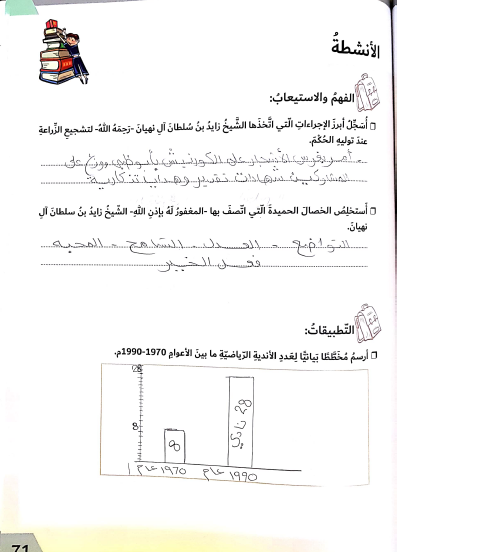 الأنشطةُ
الفهمُ والاستيعابُ:
أُسَجِّلُ أبرزَ الإجراءاتِ الّتي اتَّخذَها الشَّيخُ زايدُ بنُ سُلطانَ آلِ نهيانَ -رَحِمَهُ اللهُ- لتشجيعِ الزّراعةِ
عندَ توليهِ الحُكْمَ.
- أمر بغرس الأشجار على الكورنيش بأبوظبي ووزع على
المشاركين شهادات تقدير وهدايا تذكارية
أستخلِصُ الخصالَ الحميدةَ الّتي اتّصفَ بها -المغفورُ لَهُ بإذنِ اللهِ- الشّيخُ زايدُ بنُ سلطانَ آلِ
نهيانَ.
التواضع - العدل - التسامح - المحبه
فعل الخير
التّطبيقاتُ:
أرسمُ مُخَطَّطًا بَيانيًّا لِعَددِ الأنديةِ الرّياضيّةِ ما بينَ الأعوامِ 1970-1990م.
28
8
8
28 نادي
عام 1970
عام 1990
71